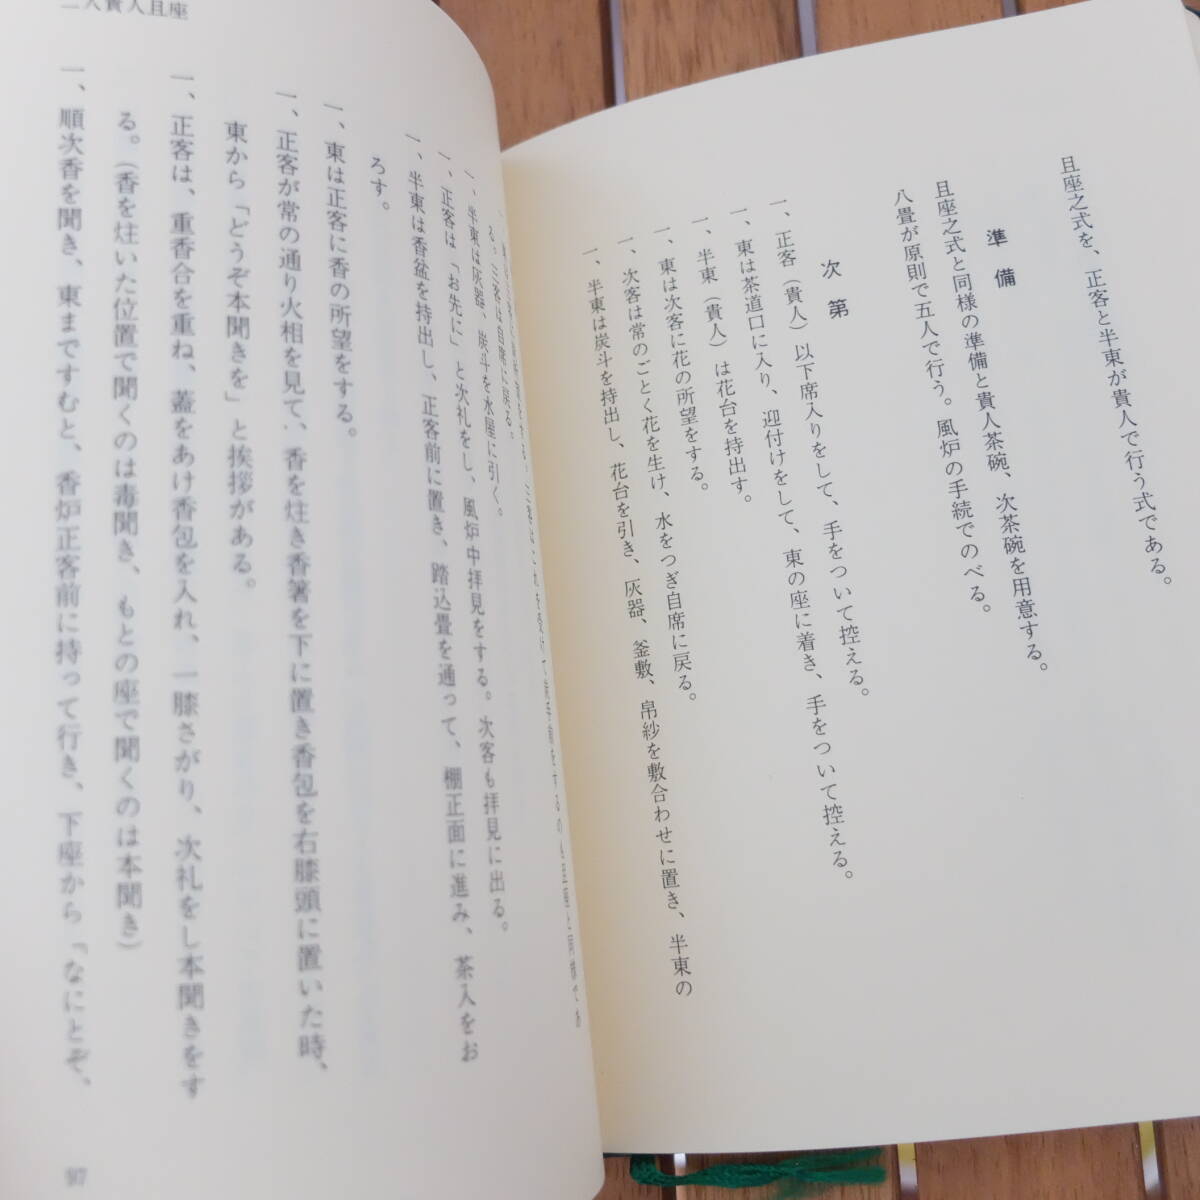 且座之式を、正客と半東が貴人で行う式である。
準備
且座之式と同様の準備と貴人茶碗、次茶碗を用意する。
八畳が原則で五人で行う。風炉の手続でのべる。
次第
一、正客（貴人）以下席入りをして、手をついて控える。
一、東は茶道口に入り、迎付けをして、東の座に着き、手をついて控える。
一、半東（貴人）は花台を持出す。
一、東は次客に花の所望をする。
一、次客は常のごとく花を生け、水をつぎ自席に戻る。
一、半東は炭斗を持出し、花台を引き、灰器、釜敷、帛紗を敷合わせに置き、半東の
る。三客は自席に戻る。
一、半東は灰器、炭斗を水屋に引く。
一、正客は「お先に」と次礼をし、風炉中拝見をする。次客も拝見に出る。
一、半東は香盆を持出し、正客前に置き、踏込畳を通って、棚正面に進み、茶入をお
ろす。
一、東は正客に香の所望をする。
一、正客が常の通り火相を見て、香を炷き香箸を下に置き香包を右膝頭に置いた時、
東から「どうぞ本聞きを」と挨拶がある。
一、正客は、重香合を重ね、蓋をあけ香包を入れ、一膝さがり、次礼をし本聞きをす
る。（香を炷いた位置で聞くのは毒聞き、もとの座で聞くのは本聞き）
一、順次香を聞き、東まですむと、香炉正客前に持って行き、下座から「なにとぞ、
二人貴人且座
97